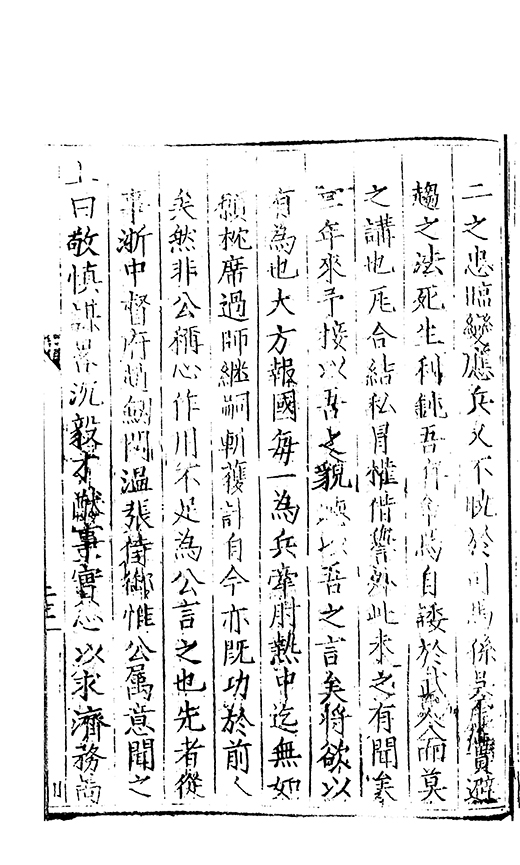 二之忠臨變應兵又不眈於司馬係吳避
趨之法死生利鈍吾何争焉自諉於武人而莫
之講也厎合結私冒權借譽外此未之有聞矣
年來予接以吾之貌以吾之言矣將欲以
有為也大方報國每一為兵牽肘熱中迄無如
願枕席過師繼嗣斬獲計自今亦既功於前人
矣然非公稱心作用不足為公言之也先者從
事浙中督府趙温張侍御惟公属意聞之
上曰敬慎謀畧沉毅才猷事實忠以求濟務尚